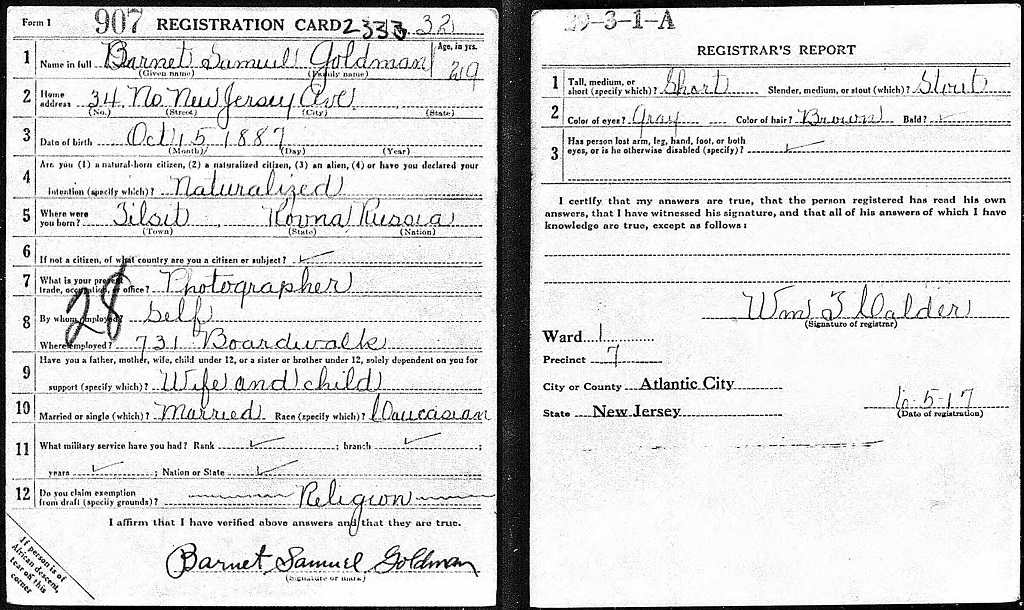 Form 1 907 REGISTRATION CARD 2333 32
1 Name in full Barnet Samuel Goldman Age, in yrs. 29
(Given name) (Family name)
2 Home address 34. No. New Jersey Ave
(No.) (Street) (City) (State)
3 Date of birth Oct 15 1887
(Month) (Day) (Year)
4 Are you (1) a natural-born citizen, (2) a naturalized citizen, (3) an alien, (4) or have you declared your
intention (specify which)? Naturalized
5 Where were you born? Tilsit Kovna Russia
(Town) (State) (Nation)
6 If not a citizen, of what country are you a citizen or subject?
7 What is your present trade, occupation, or office? Photographer
28
8 By whom employed? Self
Where employed? 731 Boardwalk
9 Have you a father, mother, wife, child under 12, or a sister or brother under 12, solely dependent on you for
support (specify which)? Wife and child
10 Married or single (which)? Married Race (specify which)? Caucasian
11 What military service have you had? Rank ; branch ;
years ; Nation or State
12 Do you claim exemption from draft (specify grounds)? Religion
I affirm that I have verified above answers and that they are true.
Barnet Samuel Goldman
(Signature or mark)
If person is of
African descent,
tear off this
corner
39-3-1-A
REGISTRAR'S REPORT
1 Tall, medium, or short (specify which)? Short Slender, medium, or stout (which)? Stout
2 Color of eyes? Gray Color of hair? Brown Bald?
3 Has person lost arm, leg, hand, foot, or both
eyes, or is he otherwise disabled (specify)?
I certify that my answers are true, that the person registered has read his own
answers, that I have witnessed his signature, and that all of his answers of which I have
knowledge are true, except as follows:
Wm
(Signature of registrar)
Ward 1
Precinct 7
City or County Atlantic City
State New Jersey
6-5-17
(Date of registration)